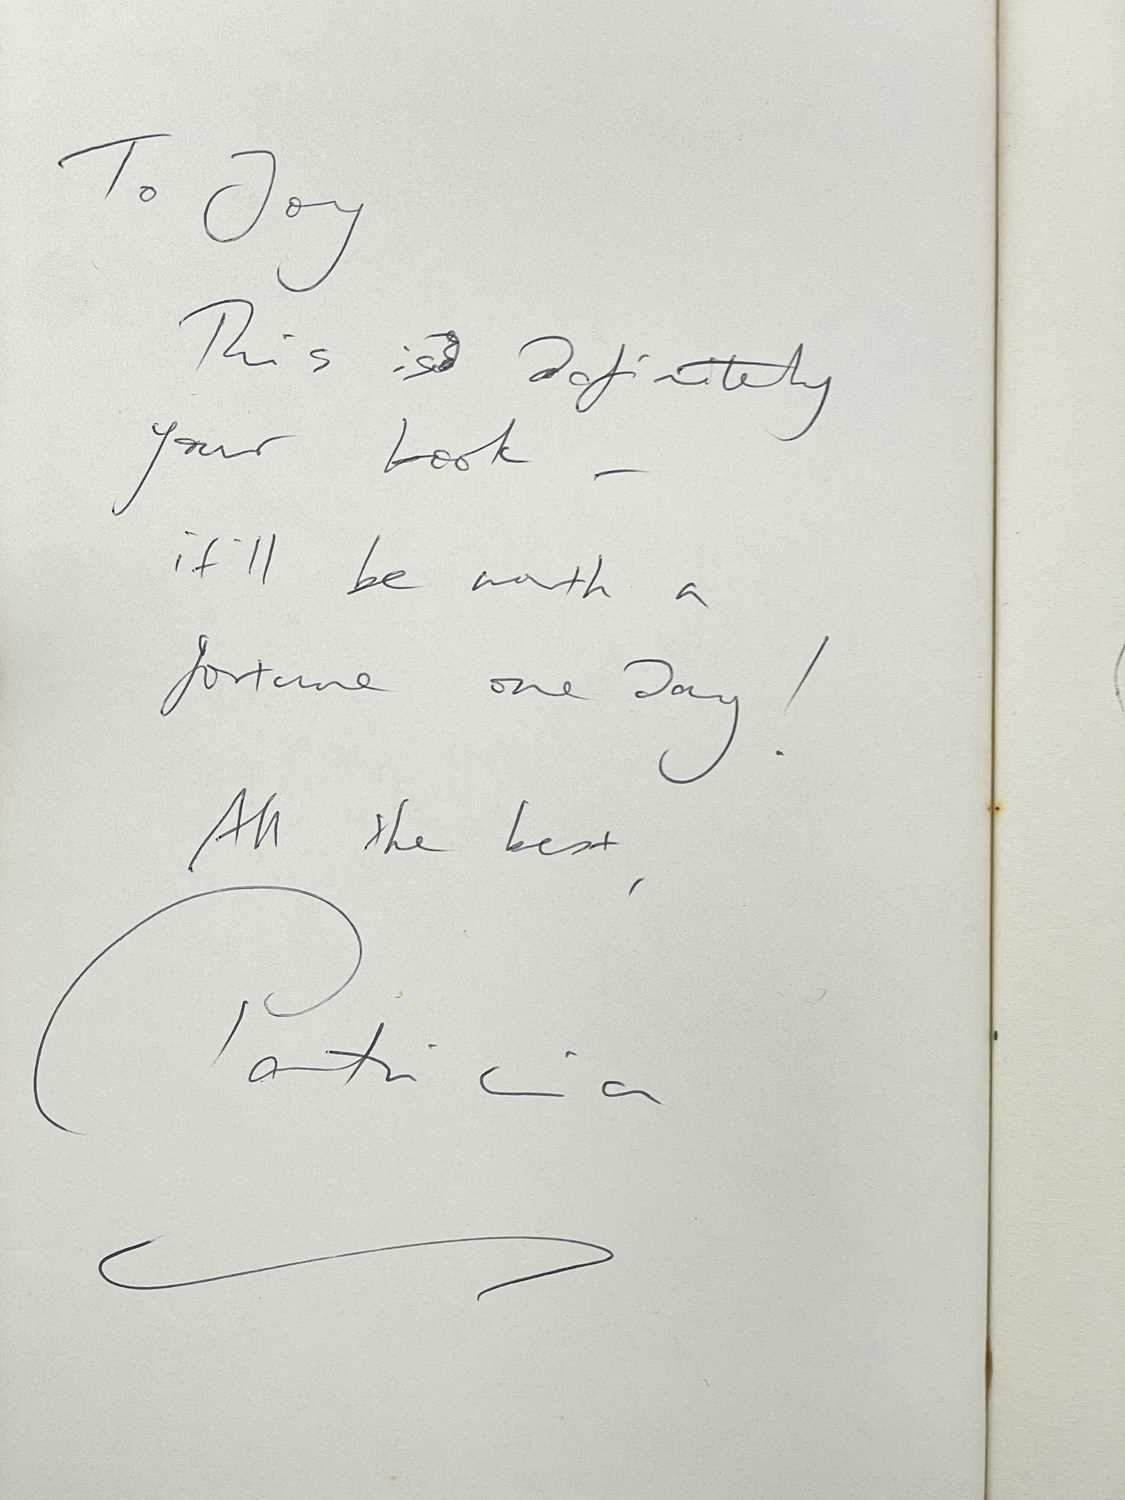 To Joy
This is definitely
your book –
it'll be worth a
fortune one day!
All the best,
Patricia